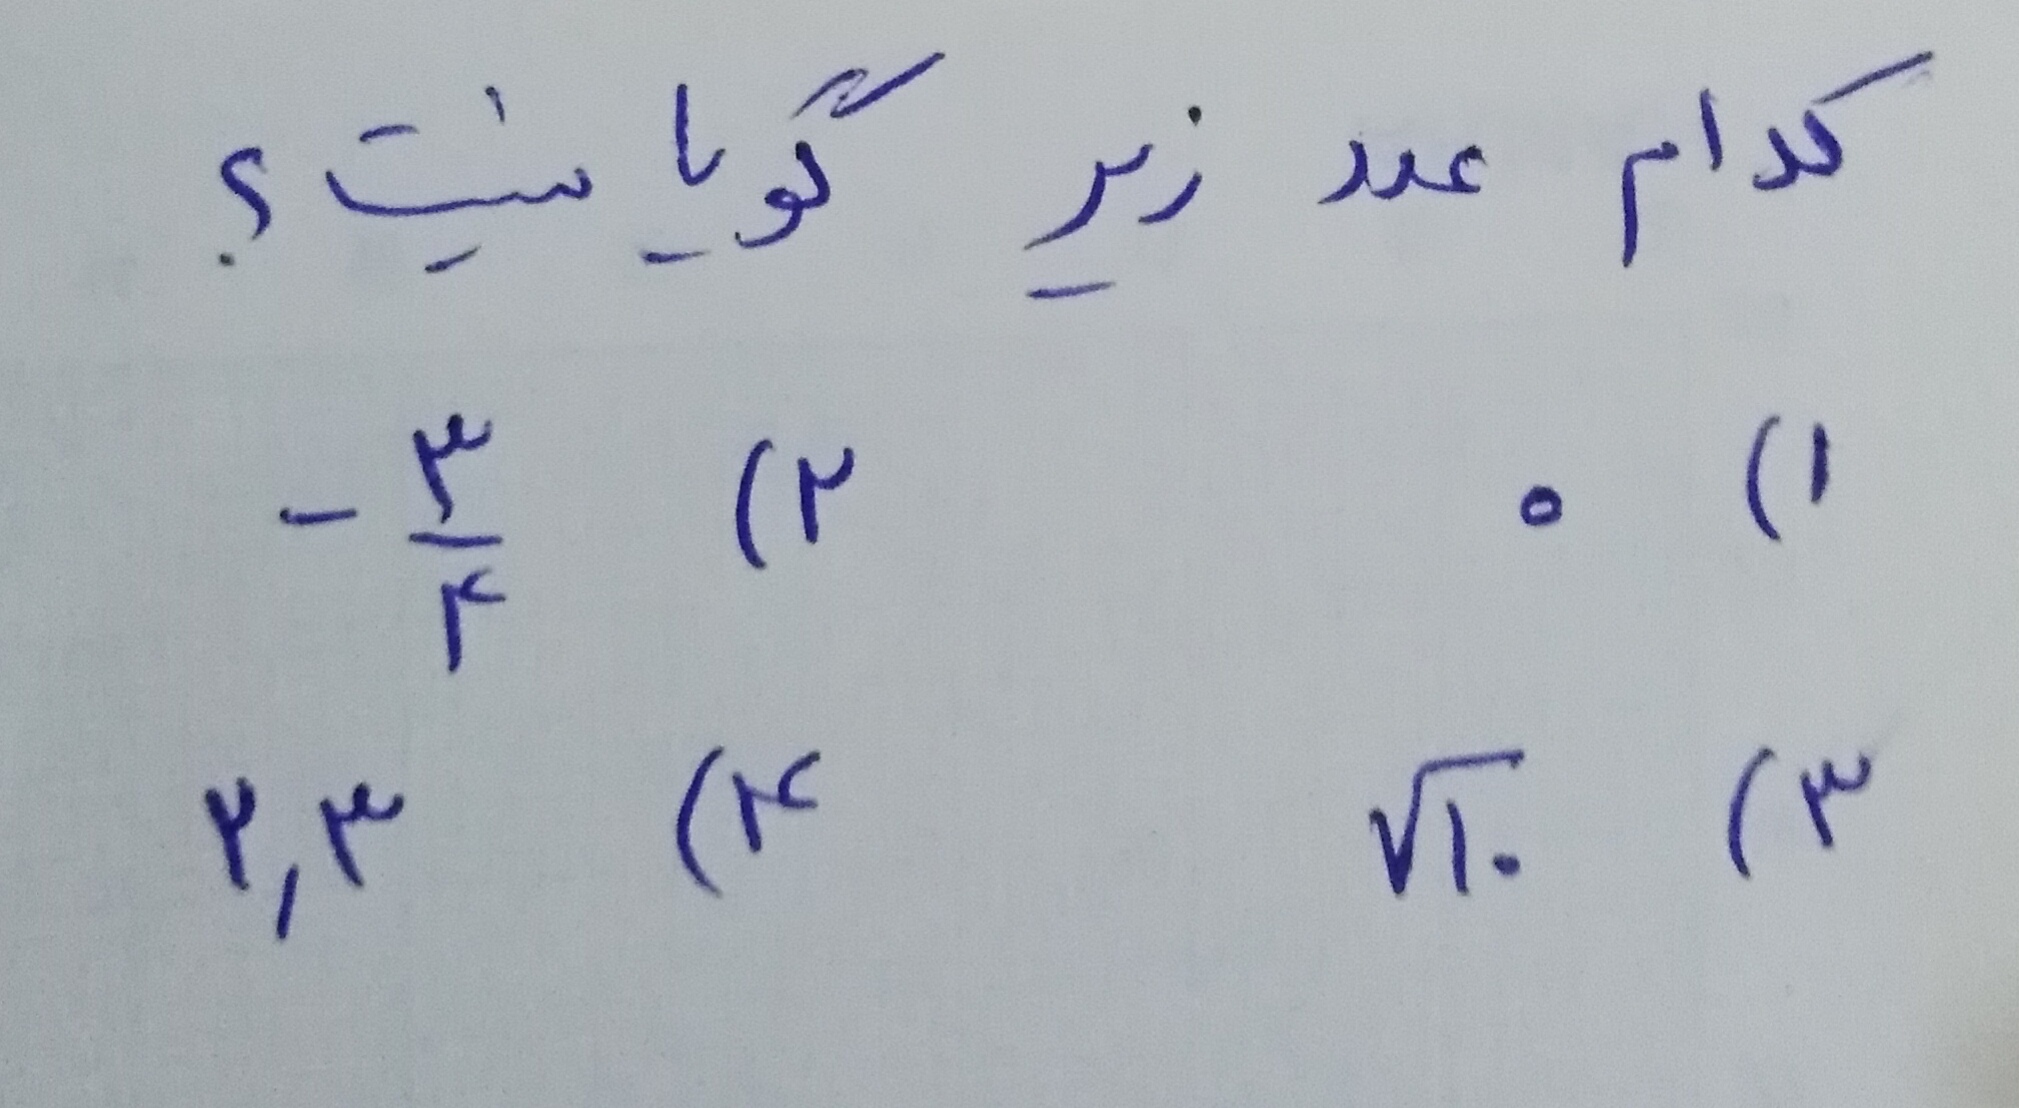 کدام عدد زیر گویا نیست؟
۱) ۰ ۲) -۳/۴
۳) √۱۰ ۴) ۲,۳